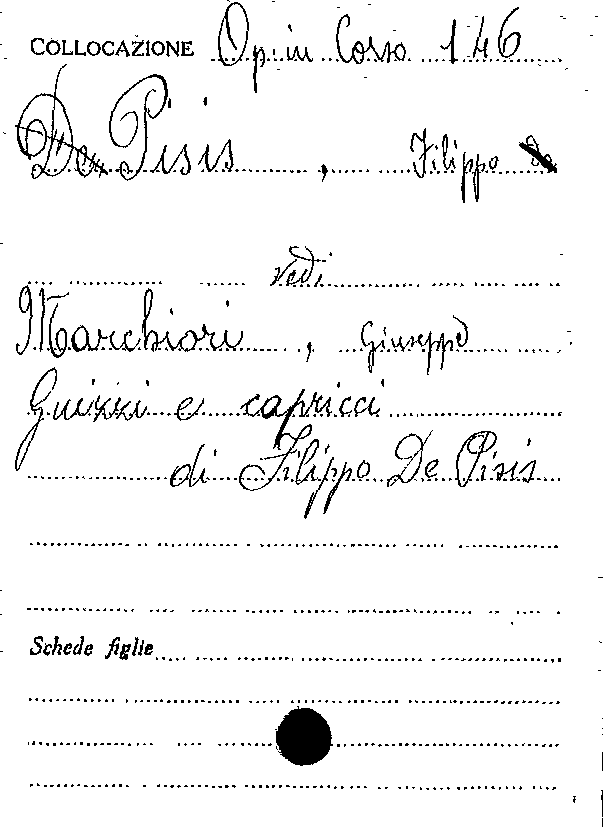 COLLOCAZIONE Op. in Corso 146
De Pisis, Filippo De
vedi
Marchiori, Giuseppe
Guizzi e capricci
di Filippo De Pisis
Schede figlie